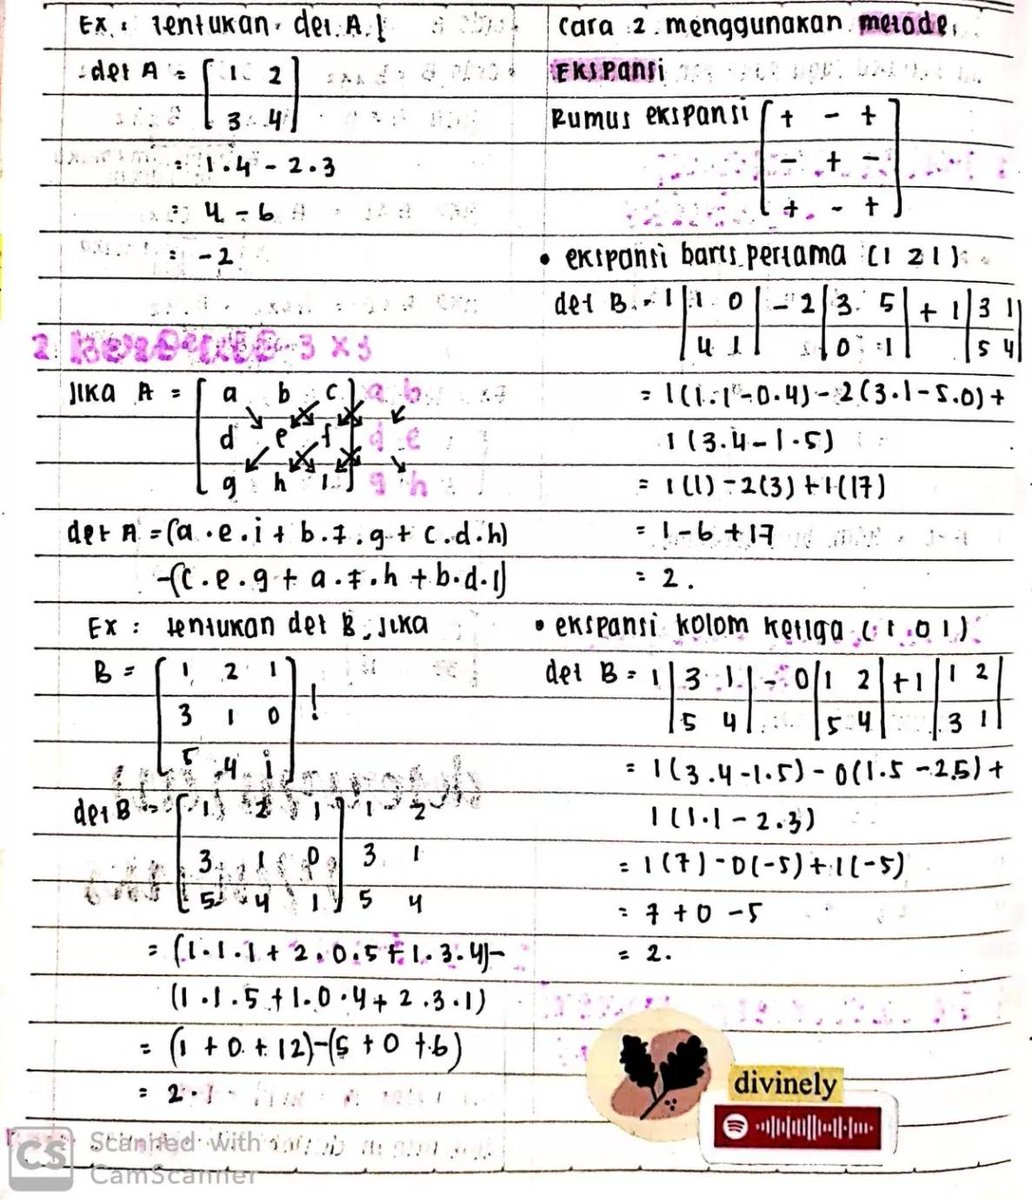 Ex : Tentukan det A !
det A = [ 1 2
3 4 ]
= 1.4 - 2.3
= 4 - 6
= -2
2. 3 x 3
JIKA A = [ a b c ] a b
d e f d e
g h i g h
det A = (a.e.i + b.f.g + c.d.h)
-(c.e.g + a.f.h + b.d.i)
Ex : tentukan det B, Jika
B = [ 1 2 1
3 1 0 ] !
5 4 1
det B = [ 1 2 1 ] 1 2
3 1 0 3 1
5 4 1 5 4
= (1.1.1 + 2.0.5 + 1.3.4) -
(1.1.5 + 1.0.4 + 2.3.1)
= (1 + 0 + 12) - (5 + 0 + 6)
= 2
Cara 2 menggunakan metode
EKSPANSI
Rumus ekspansi [ + - +
- + -
+ - + ]
• ekspansi baris pertama (1 2 1)
det B = 1 | 1 0 | - 2 | 3 5 | + 1 | 3 1 |
4 1 0 1 5 4
= 1(1.1 - 0.4) - 2(3.1 - 5.0) +
1(3.4 - 1.5)
= 1(1) - 2(3) + 1(17)
= 1 - 6 + 17
= 2.
• ekspansi kolom ketiga (1 0 1)
det B = 1 | 3 1 | - 0 | 1 2 | + 1 | 1 2 |
5 4 5 4 3 1
= 1(3.4 - 1.5) - 0(1.5 - 2.5) +
1(1.1 - 2.3)
= 1(7) - 0(-5) + 1(-5)
= 7 + 0 - 5
= 2.
divinely
CS Scanned with
CamScanner